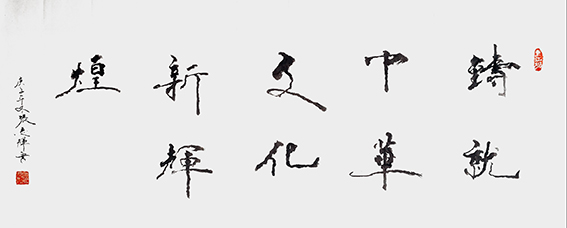 鑄就
中華
文化
新輝
煌